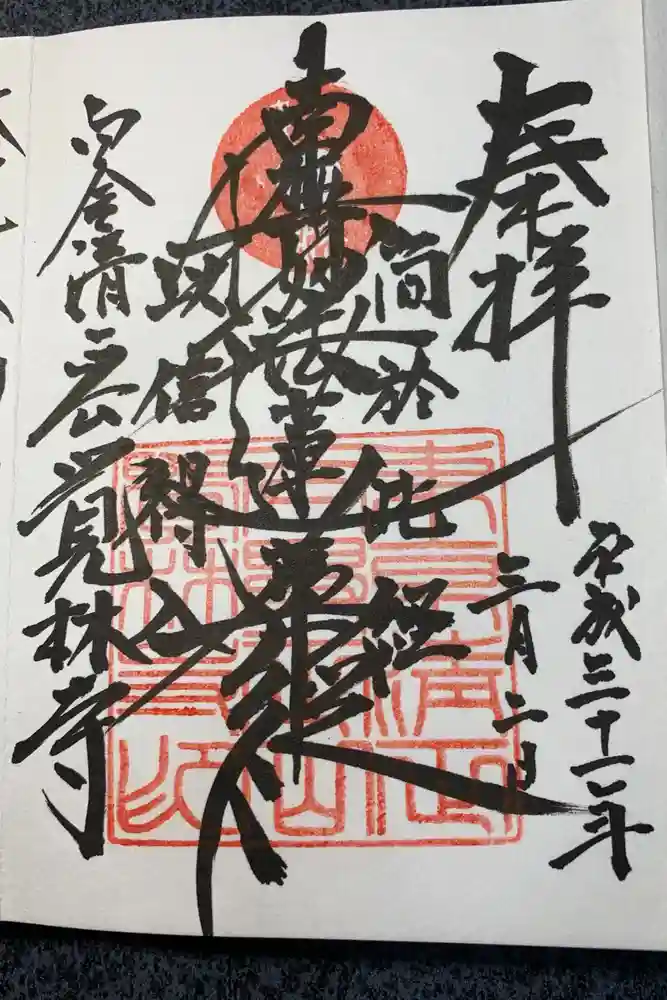 奉拝
平成三十一年
三月二日
尚於此経
南無妙法蓮華経
以信得入
白金清正公覚林寺